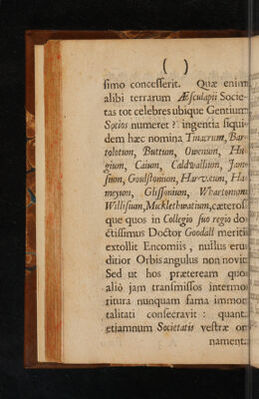 ( )
simo concesserit. Quæ enim
alibi terrarum Æsculapii Socie-
tas tot celebres ubique Gentium
Socios numeret? ingentia siqui-
dem hæc nomina Linacrum, Bar-
tolotum, Buttum, Owenum, Hu-
gium, Caium, Caldwallium, Jam-
sium, Gouldstonium, Harvæum, Ha-
meyum, Glissonium, Whartonium
Willisium, Micklethwatium, cæteros-
que quos in Collegio suo regio do-
ctissimus Doctor Goodall meritis
extollit Encomiis, nullus eru-
ditior Orbis angulus non novit
Sed ut hos præteream quos
aliò jam transmissos intermo-
ritura nunquam fama immor-
talitati consecravit: quanta
etiamnum Societatis vestræ or-
nament.